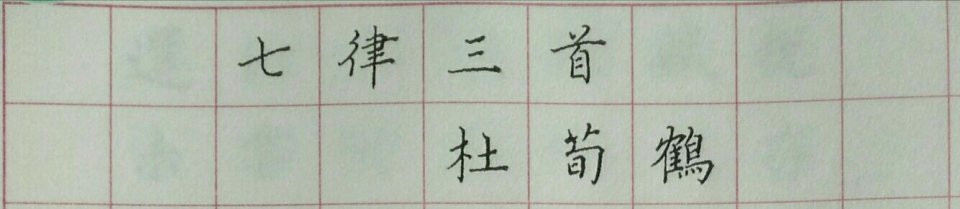 七律三首
杜荀鹤